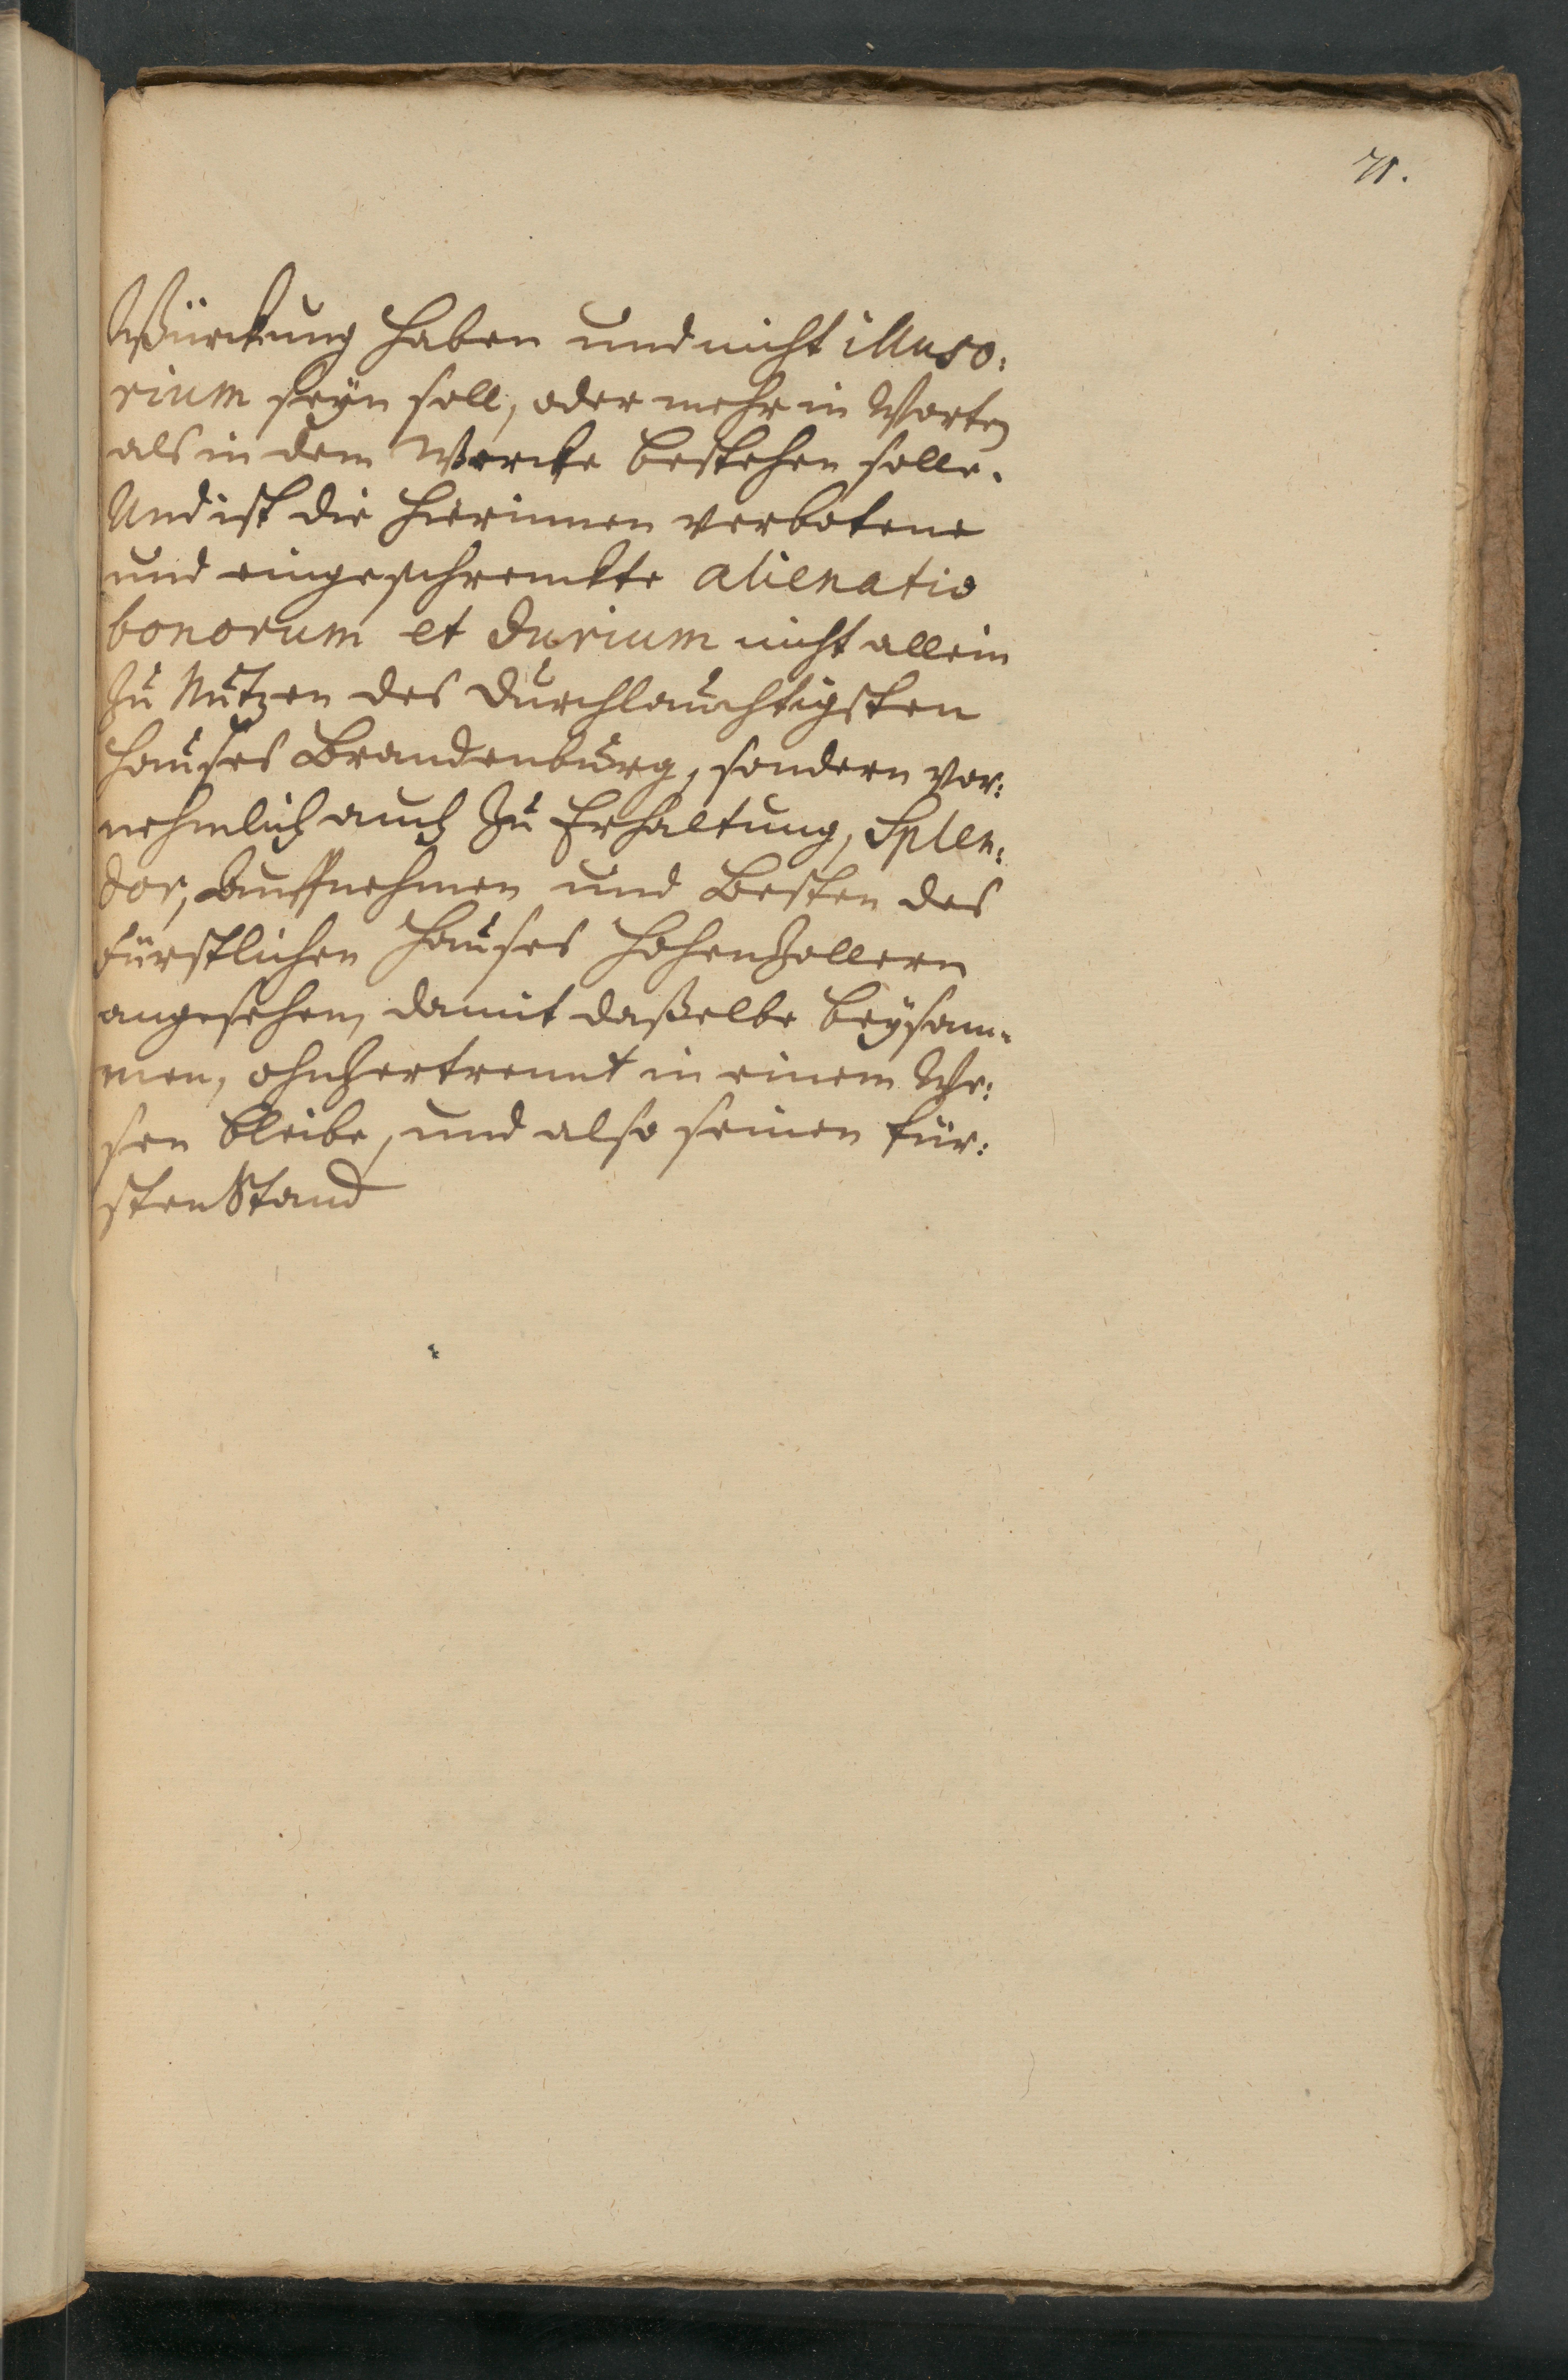 71.
Würckung haben und nicht illuso:
rium seyn soll, oder mehr in Worten
als in dem Wercke bestehen solle.
Und ist die hierinnen verbotene
und eingeschrenckte alienatio
bonorum et Jurium nicht allein
zu Nutzen des Durchlauchtigsten
Hauses Brandenburg, sondern vor:
nehmlich auch zu Erhaltung, Splen:
dor, Auffnehmen und Besten des
Fürstlichen Hauses Hohenzollern
angesehen, damit daßelbe beysam-
men, ohnzertrennt in einem We:
sen bleibe, und also seinen Für:
stenStand